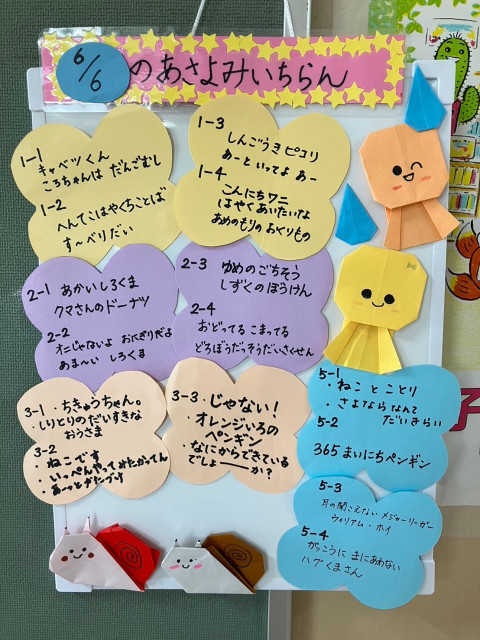 6/6 のあさよみいちらん
1-1
キャベツくん
ころちゃんは だんごむし
1-2
へんてこはやくちことば
す~べりだい
1-3
しんごうきピコリ
あーといってよ あー
1-4
こんにちワニ
はやくあいたいな
あめのもりのおくりもの
2-1 あかいしろくま
クマさんのドーナツ
2-2
オニじゃないよ おにぎりだよ
あま~い しろくま
2-3 ゆめのごちそう
しずくのぼうけん
2-4
おどってる こまってる
どろぼうだっそうだいさくせん
3-1 ・ちきゅうちゃん。
・しりとりのだいすきな
おうさま
3-2
・ねこです
・いっぺんやってみたかってん
・あーっとかたづけ
3-3 ・じゃない!
・オレンジいろの
ペンギン
・なにからできている
でしょーーか?
5-1
・ねこ と ことり
・さよならなんて
だいきらい
5-2
365まいにちペンギン
5-3
耳の聞こえないメジャーリーガー
ウィリアム・ホイ
5-4
がっこうに まにあわない
ハブくまさん